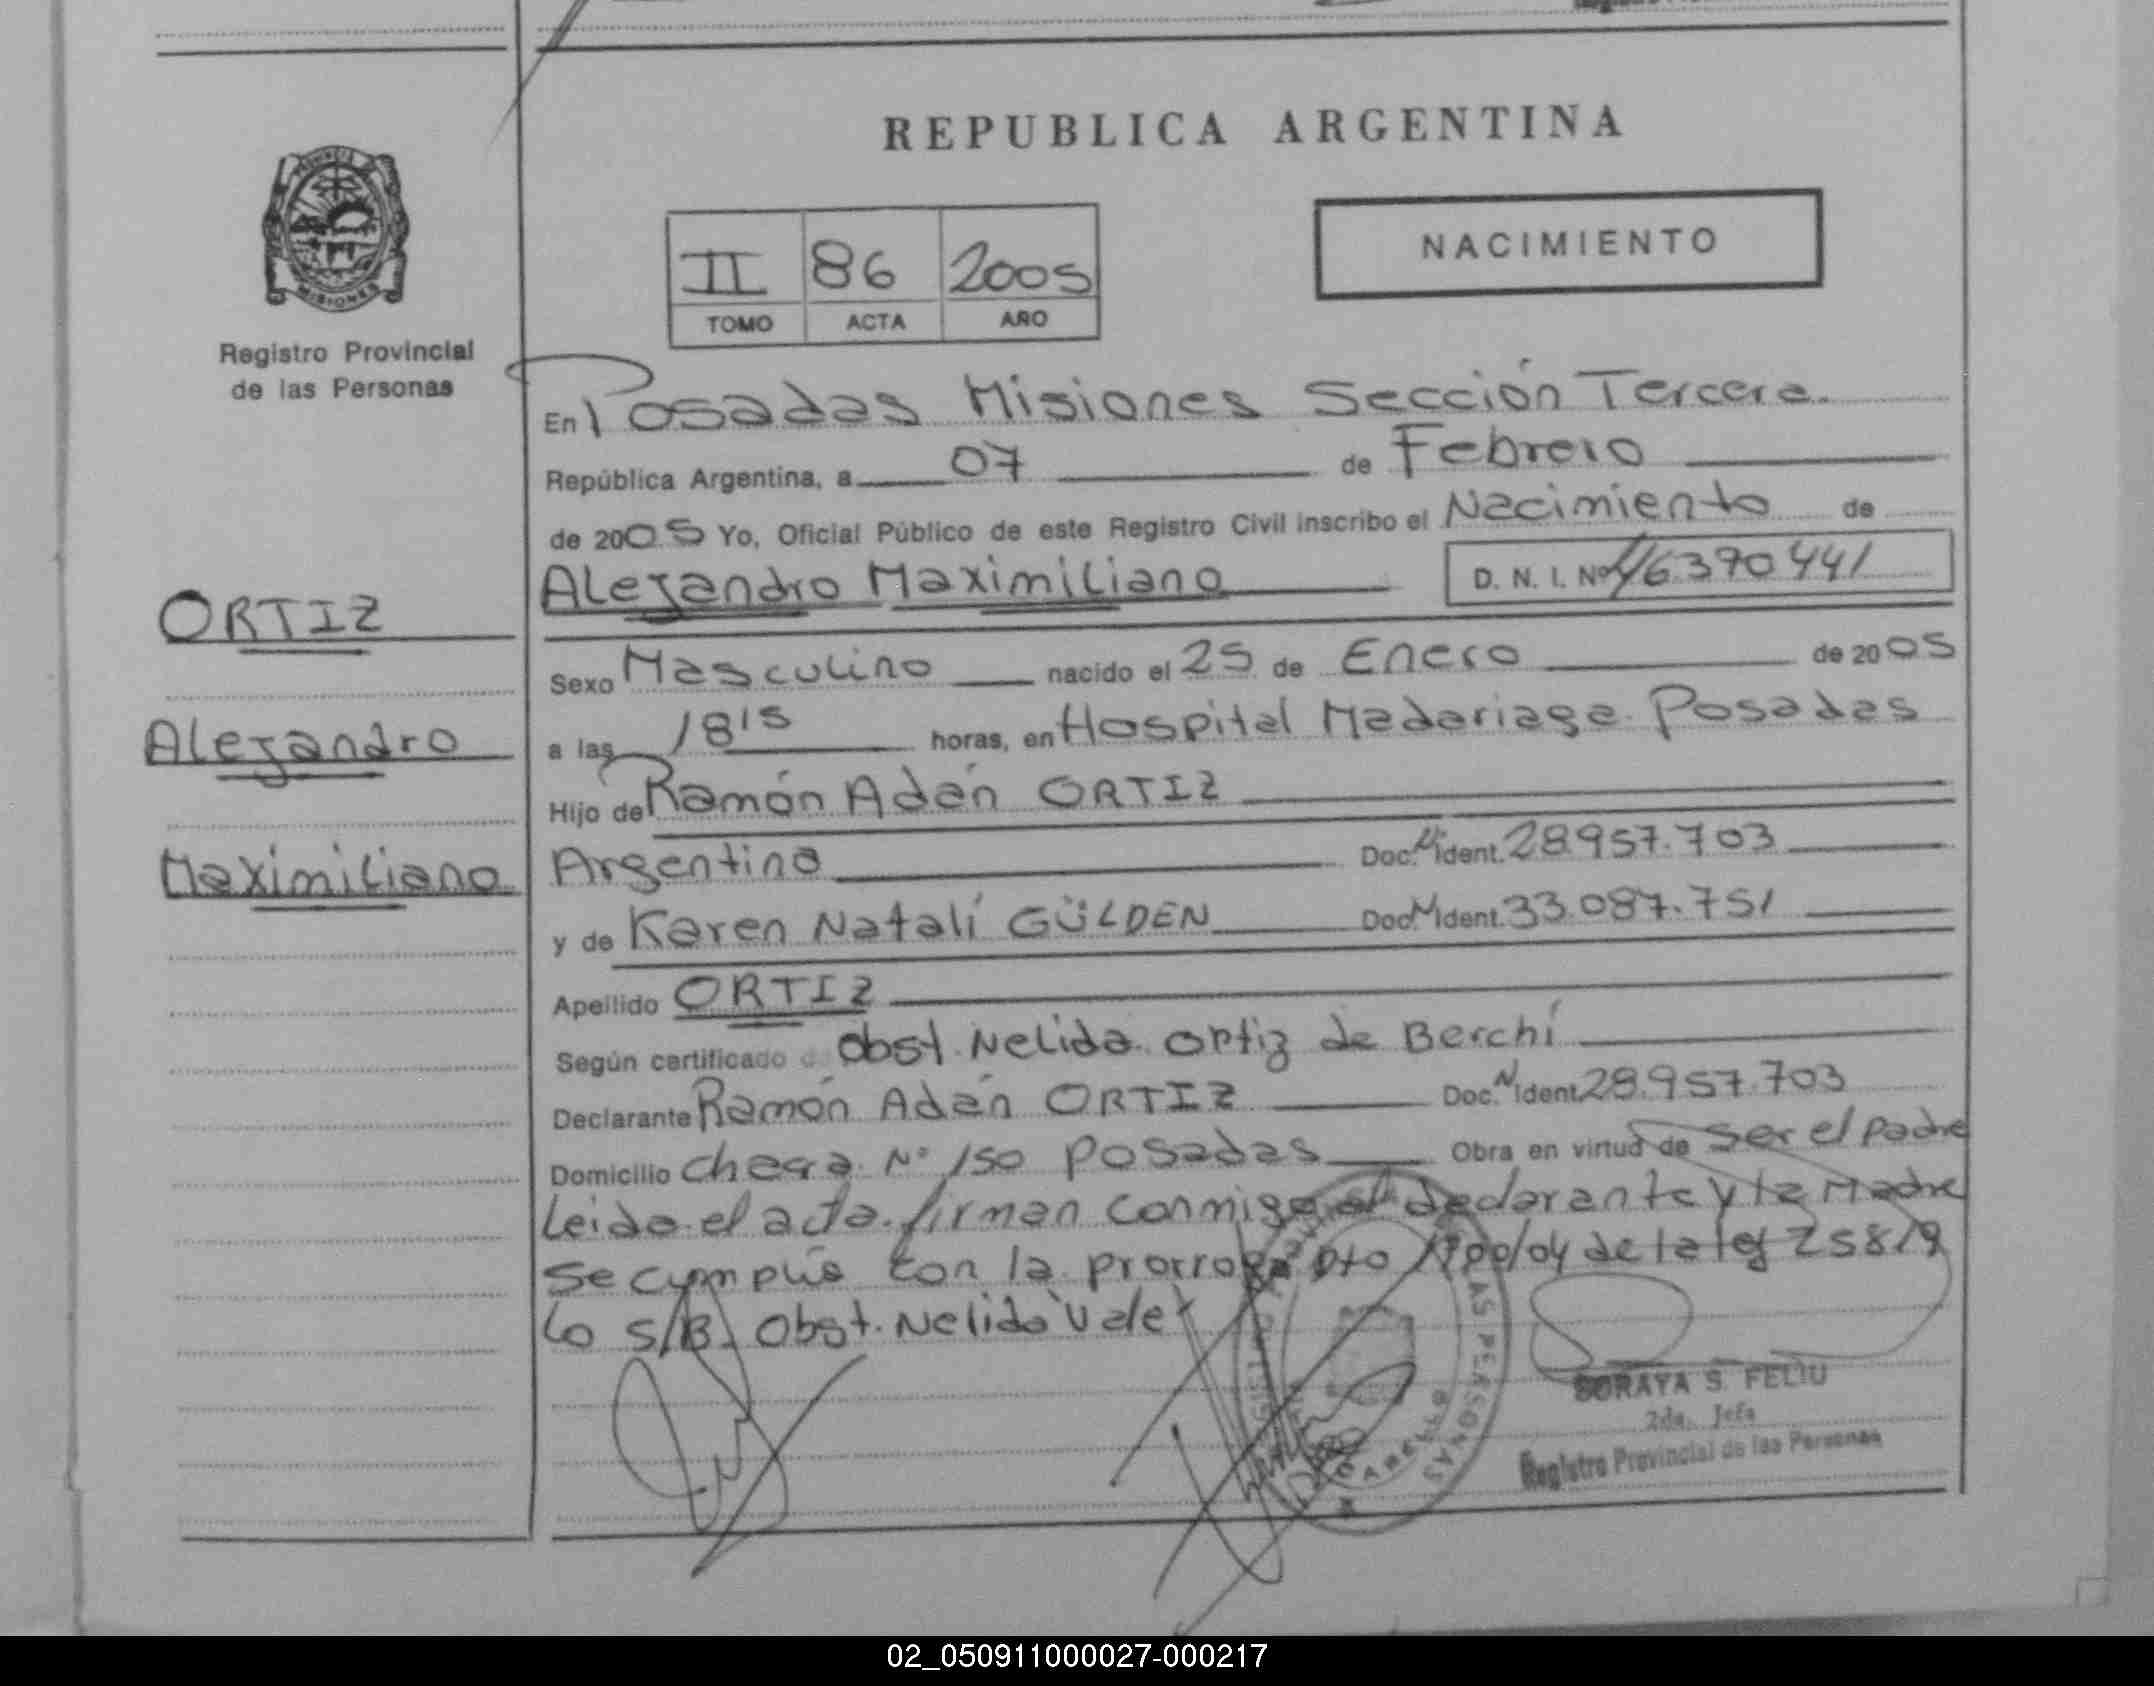 REPUBLICA ARGENTINA
MISIONES
Registro Provincial
de las Personas
II 86 2005
TOMO ACTA AÑO
NACIMIENTO
En Posadas Misiones Sección Tercera.
República Argentina, a 07 de Febrero
de 2005 Yo, Oficial Público de este Registro Civil inscribo el Nacimiento de
Alejandro Maximiliano D. N. I. Nº 46390441
ORTIZ
Alejandro
Maximiliano
Sexo Masculino nacido el 25 de Enero de 2005
a las 18 15 horas, en Hospital Madariaga Posadas
Hijo de Ramón Adán ORTIZ
Argentino Doc. N Ident. 28.957.703
y de Karen Natalí GÜLDEN Doc. N Ident. 33.087.751
Apellido ORTIZ
Según certificado d Obst. Nelida Ortiz de Berchi
Declarante Ramón Adán ORTIZ Doc. N Ident. 28.957.703
Domicilio Chacra Nº 150 Posadas Obra en virtud de ser el padre
Leida el acta firman conmigo el declarante y la Madre
Se cumplió con la prorroga Dto 1700/04 de la ley 25819
Lo S/B. Obst. Nelida Vale
LAS PERSONAS
SORAYA S. FELIU
2da. Jefa
Registro Provincial de las Personas
02_050911000027-000217